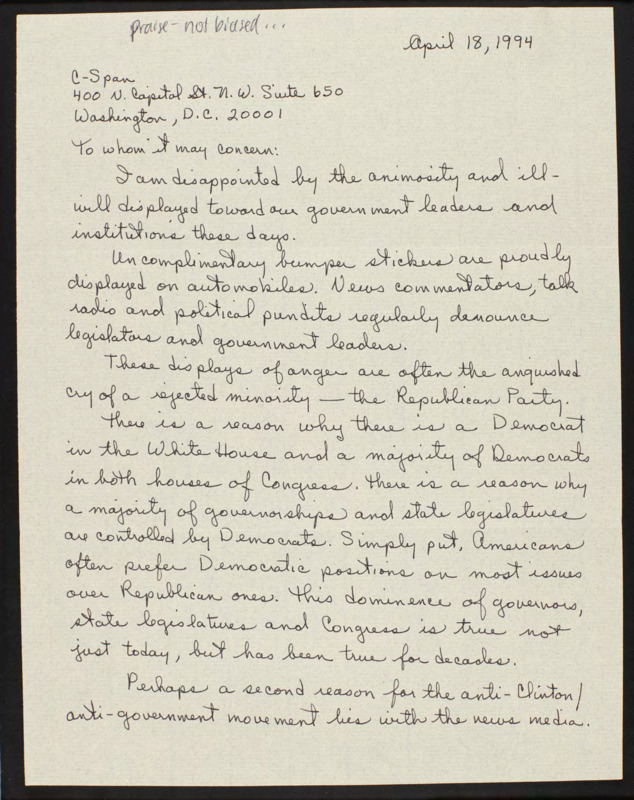 praise - not biased...
April 18, 1994
C-Span
400 N. Capital St. N.W. Suite 650
Washington, D.C. 20001
To whom it may concern:
I am disappointed by the animosity and ill-
will displayed toward our government leaders and
institutions these days.
Uncomplimentary bumper stickers are proudly
displayed on automobiles. News commentators, talk
radio and political pundits regularly denounce
legislators and government leaders.
These displays of anger are often the anquished
cry of a rejected minority — the Republican Party.
There is a reason why there is a Democrat
in the White House and a majority of Democrats
in both houses of Congress. There is a reason why
a majority of governorships and state legislatures
are controlled by Democrats. Simply put, Americans
often prefer Democratic positions on most issues
over Republican ones. This dominence of governors,
state legislatures and Congress is true not
just today, but has been true for decades.
Perhaps a second reason for the anti-Clinton/
anti-government movement lies with the news media.